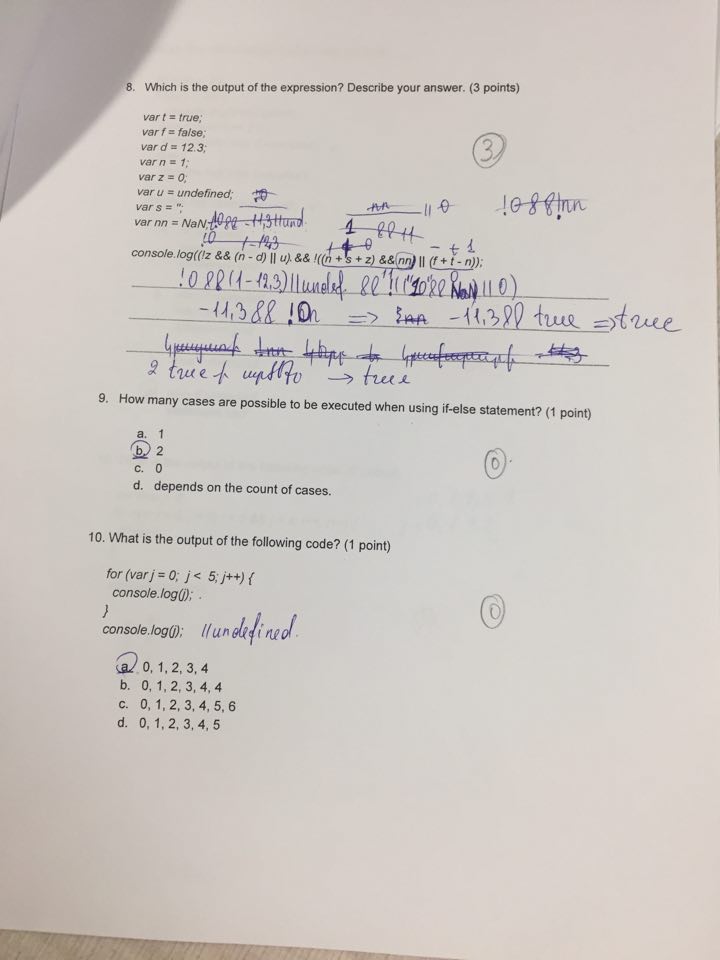 8. Which is the output of the expression? Describe your answer. (3 points)
var t = true;
var f = false;
var d = 12.3;
var n = 1;
var z = 0;
var u = undefined;
var s = '';
var nn = NaN;
3
|| 0
!0 && !nn
- + 1
console.log((!z && (n - d) || u) && !((n + s + z) && nn) || (f + t - n));
!0 && (1-12,3) || undef. && !(("10" && NaN) || 0)
-11,3 && !0 => -11,3 && true => true
2 true -> true
9. How many cases are possible to be executed when using if-else statement? (1 point)
a. 1
b. 2
c. 0
d. depends on the count of cases.
0
10. What is the output of the following code? (1 point)
for (var j = 0; j < 5; j++) {
console.log(j);
}
console.log(j); //undefined.
0
a. 0, 1, 2, 3, 4
b. 0, 1, 2, 3, 4, 4
c. 0, 1, 2, 3, 4, 5, 6
d. 0, 1, 2, 3, 4, 5